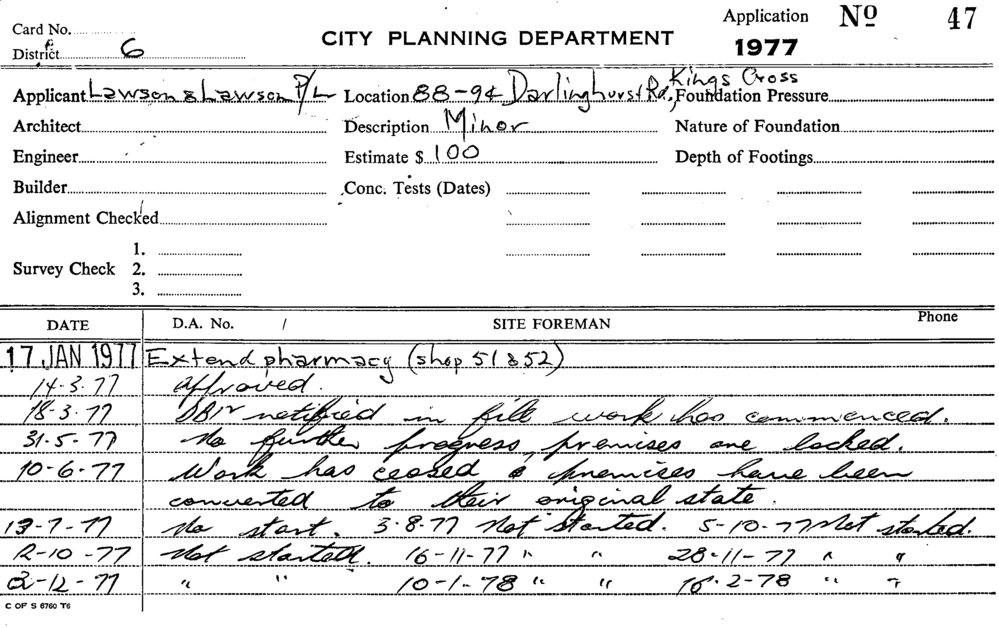 Card No.
District 6
CITY PLANNING DEPARTMENT
Application No 47
1977
Applicant Lawson & Lawson P/L Location 88-94 Darlinghurst Rd, Kings Cross Foundation Pressure
Architect Description Minor Nature of Foundation
Engineer Estimate $ 100 Depth of Footings
Builder Conc. Tests (Dates)
Alignment Checked
Survey Check 1.
2.
3.
DATE D.A. No. / SITE FOREMAN Phone
17 JAN 1977 Extend pharmacy (shop 51 & 52)
14-3-77 approved.
18-3-77 notified in file work has commenced.
31-5-77 No further progress, premises are locked.
10-6-77 Work has ceased & premises have been
converted to their original state.
13-7-77 No start. 3-8-77 Not Started. 5-10-77 Not started.
12-10-77 Not started. 16-11-77 " " 28-11-77 " "
2-12-77 " " 10-1-78 " " 16-2-78 " "
C OF S 6760 T6